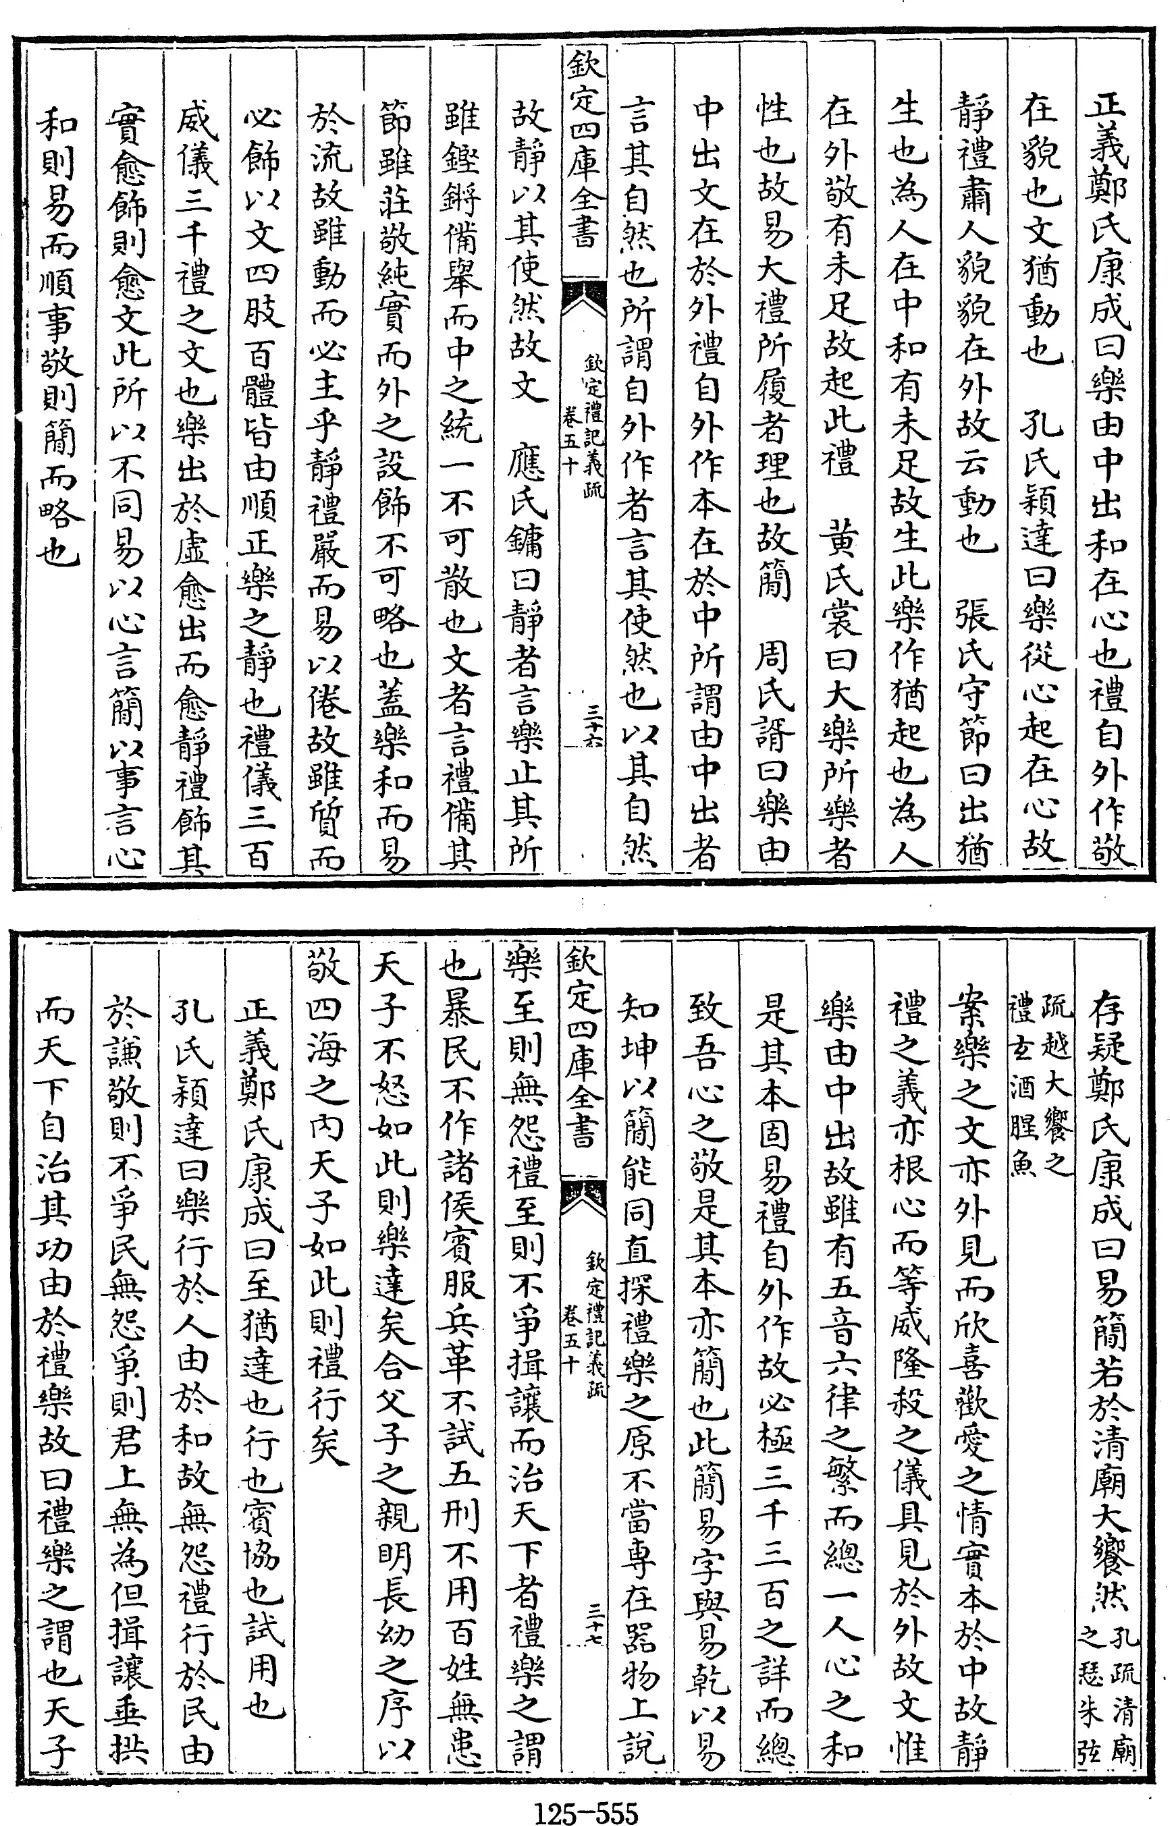 正義鄭氏康成曰樂由中出和在心也禮自外作敬
在貌也文猶動也　孔氏穎達曰樂從心起在心故
靜禮肅人貌貌在外故云動也　張氏守節曰出猶
生也為人在中和有未足故生此樂作猶起也為人
在外敬有未足故起此禮　黄氏裳曰大樂所樂者
性也故易大禮所履者理也故簡　周氏諝曰樂由
中出文在於外禮自外作本在於中所謂由中出者
言其自然也所謂自外作者言其使然也以其自然
欽定四庫全書
欽定禮記義疏
卷五十
三十六
故靜以其使然故文　應氏鏞曰靜者言樂止其所
雖鏗鏘備舉而中之統一不可散也文者言禮備其
節雖莊敬純實而外之設飾不可略也蓋樂和而易
於流故雖動而必主乎靜禮嚴而易以倦故雖質而
必飾以文四肢百體皆由順正樂之靜也禮儀三百
威儀三千禮之文也樂出於虛愈出而愈靜禮飾其
實愈飾則愈文此所以不同易以心言簡以事言心
和則易而順事敬則簡而略也
存疑鄭氏康成曰易簡若於清廟大饗然
孔疏清廟
之瑟朱弦
疏越大饗之
禮玄酒腥魚
案樂之文亦外見而欣喜歡愛之情實本於中故靜
禮之義亦根心而等威隆殺之儀具見於外故文惟
樂由中出故雖有五音六律之繁而總一人心之和
是其本固易禮自外作故必極三千三百之詳而總
致吾心之敬是其本亦簡也此簡易字與易乾以易
知坤以簡能同直探禮樂之原不當專在器物上說
欽定四庫全書
欽定禮記義疏
卷五十
三十七
樂至則無怨禮至則不爭揖讓而治天下者禮樂之謂
也暴民不作諸侯賓服兵革不試五刑不用百姓無患
天子不怒如此則樂達矣合父子之親明長幼之序以
敬四海之內天子如此則禮行矣
正義鄭氏康成曰至猶達也行也賓協也試用也
孔氏穎達曰樂行於人由於和故無怨禮行於民由
於謙敬則不爭民無怨爭則君上無為但揖讓垂拱
而天下自治其功由於禮樂故曰禮樂之謂也天子
125-555